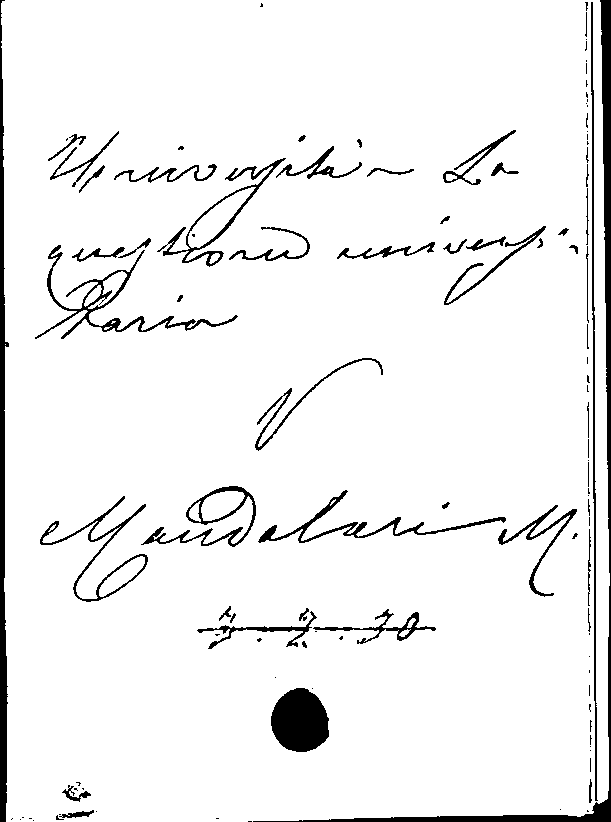 Università - La
questione universi-
taria
V
Mandalari M.
3.2.30